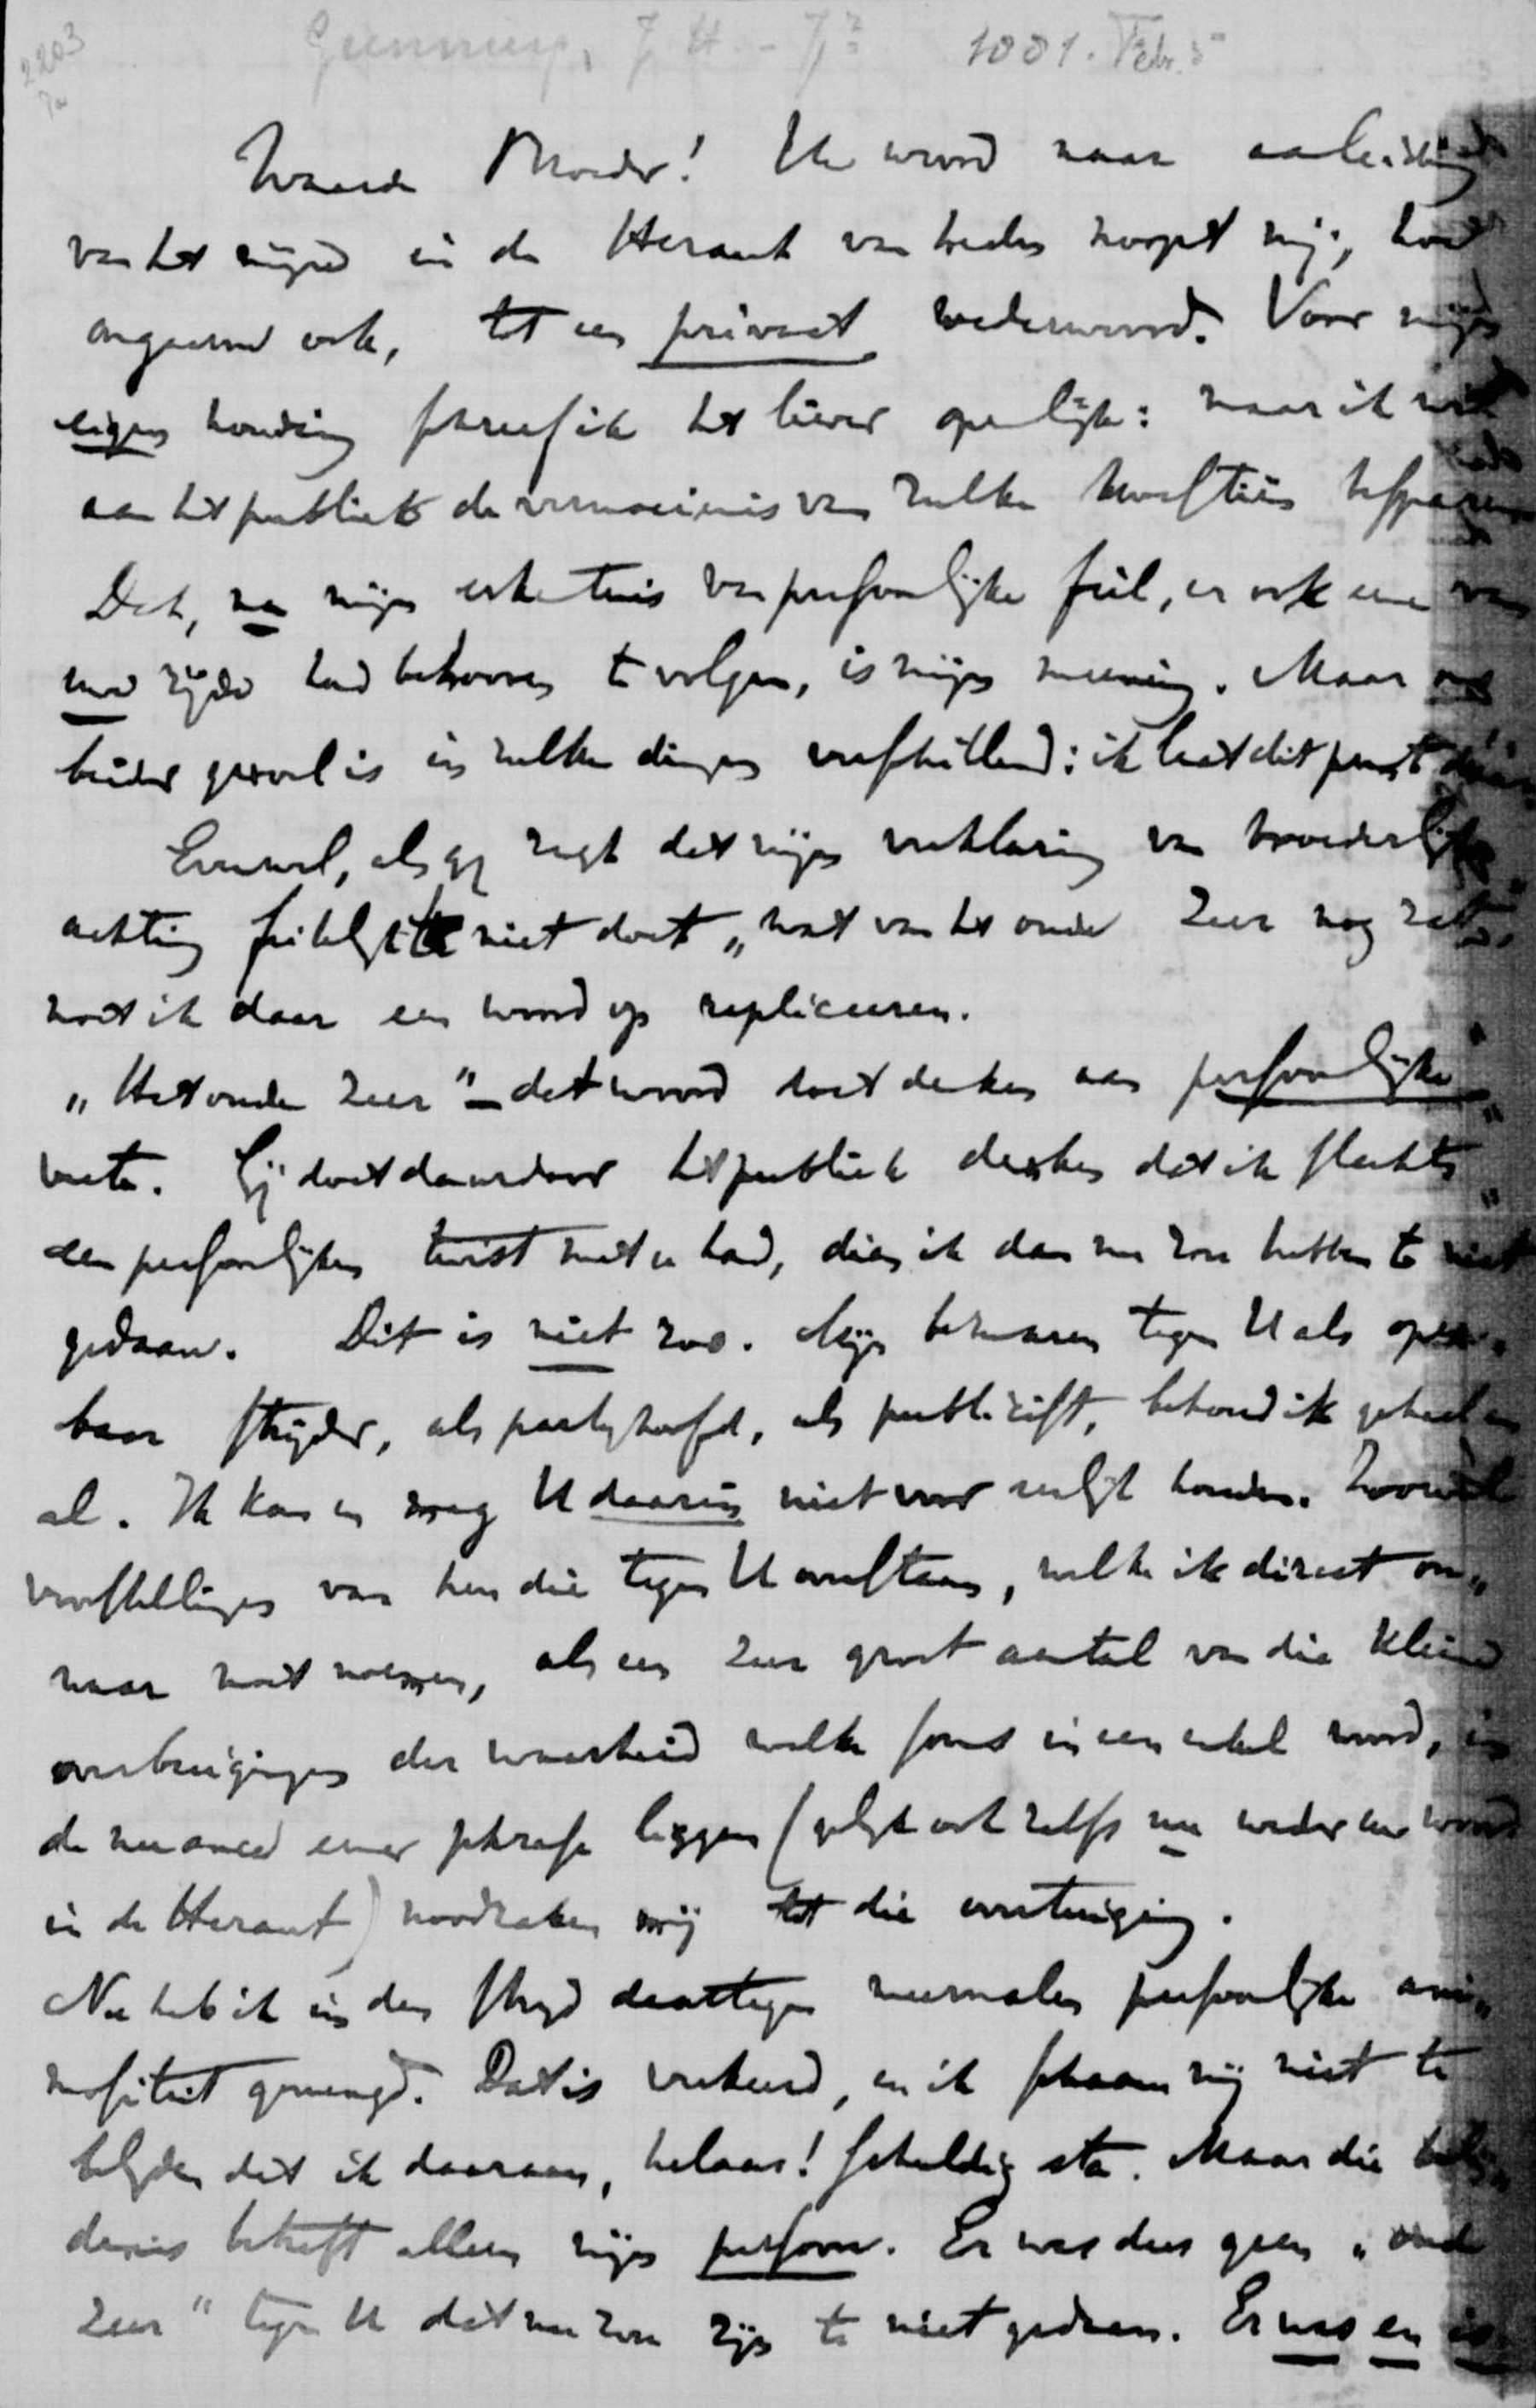 2203
Gunning, J. H. - Jz 1881. Febr. 5
Waarde Broeder! Uw woord naar aanleiding
van het mijne in de Heraut van heden noopt mij, hoe
ongaarne ook, tot een privaat wederwoord. Voor mijn
eigen houding schreef ik het liever openlijk: maar ik wil
aan het publiek de vermoeienis van zulke kwestiën besparen.
Dat, na mijn erkentenis van persoonlijke feil, er ook eene van
uwe zijde had behooren te volgen, is mijn meening. Maar ons
beider gevoel is in zulke dingen verschillend: ik laat dit punt daar.
Evenwel, als gij zegt dat mijn verklaring van broederlijke
achting feitelijk te niet doet „wat van het oude zeer nog zat,
moet ik daar een woord op repliceeren.
„Het oude zeer" – dat woord doet denken aan persoonlijke
veete. Gij doet daardoor het publiek denken dat ik slechts
een persoonlijken twist met u had, dien ik dan nu zou hebben te niet
gedaan. Dit is niet zoo. Mijn bezwaren tegen U als open-
baar strijder, als partijhoofd, als publicist, behoud ik geheel en
al. Ik kan en mag U daarin niet voor eerlijk houden. Zoowel
voorstellingen van hen die tegen U overstaan, welke ik direct on-
waar moet noemen, als een zeer groot aantal van die kleine
overbuigingen der waarheid welke soms in een enkel woord, in
de nuance eener phrase liggen (gelijk ook zelfs nu weder uw woord
in de Heraut) noodzaken mij tot die overtuiging.
Nu heb ik in den strijd daartegen meermalen persoonlijke ani-
mositeit gemengd. Dat is verkeerd, en ik schaam mij niet te
belijden dat ik daaraan, helaas! schuldig sta. Maar die belij-
denis betreft alleen mijn persoon. Er was dus geen „oude
zeer" tegen U dat nu zou zijn te niet gedaan. Er was en is